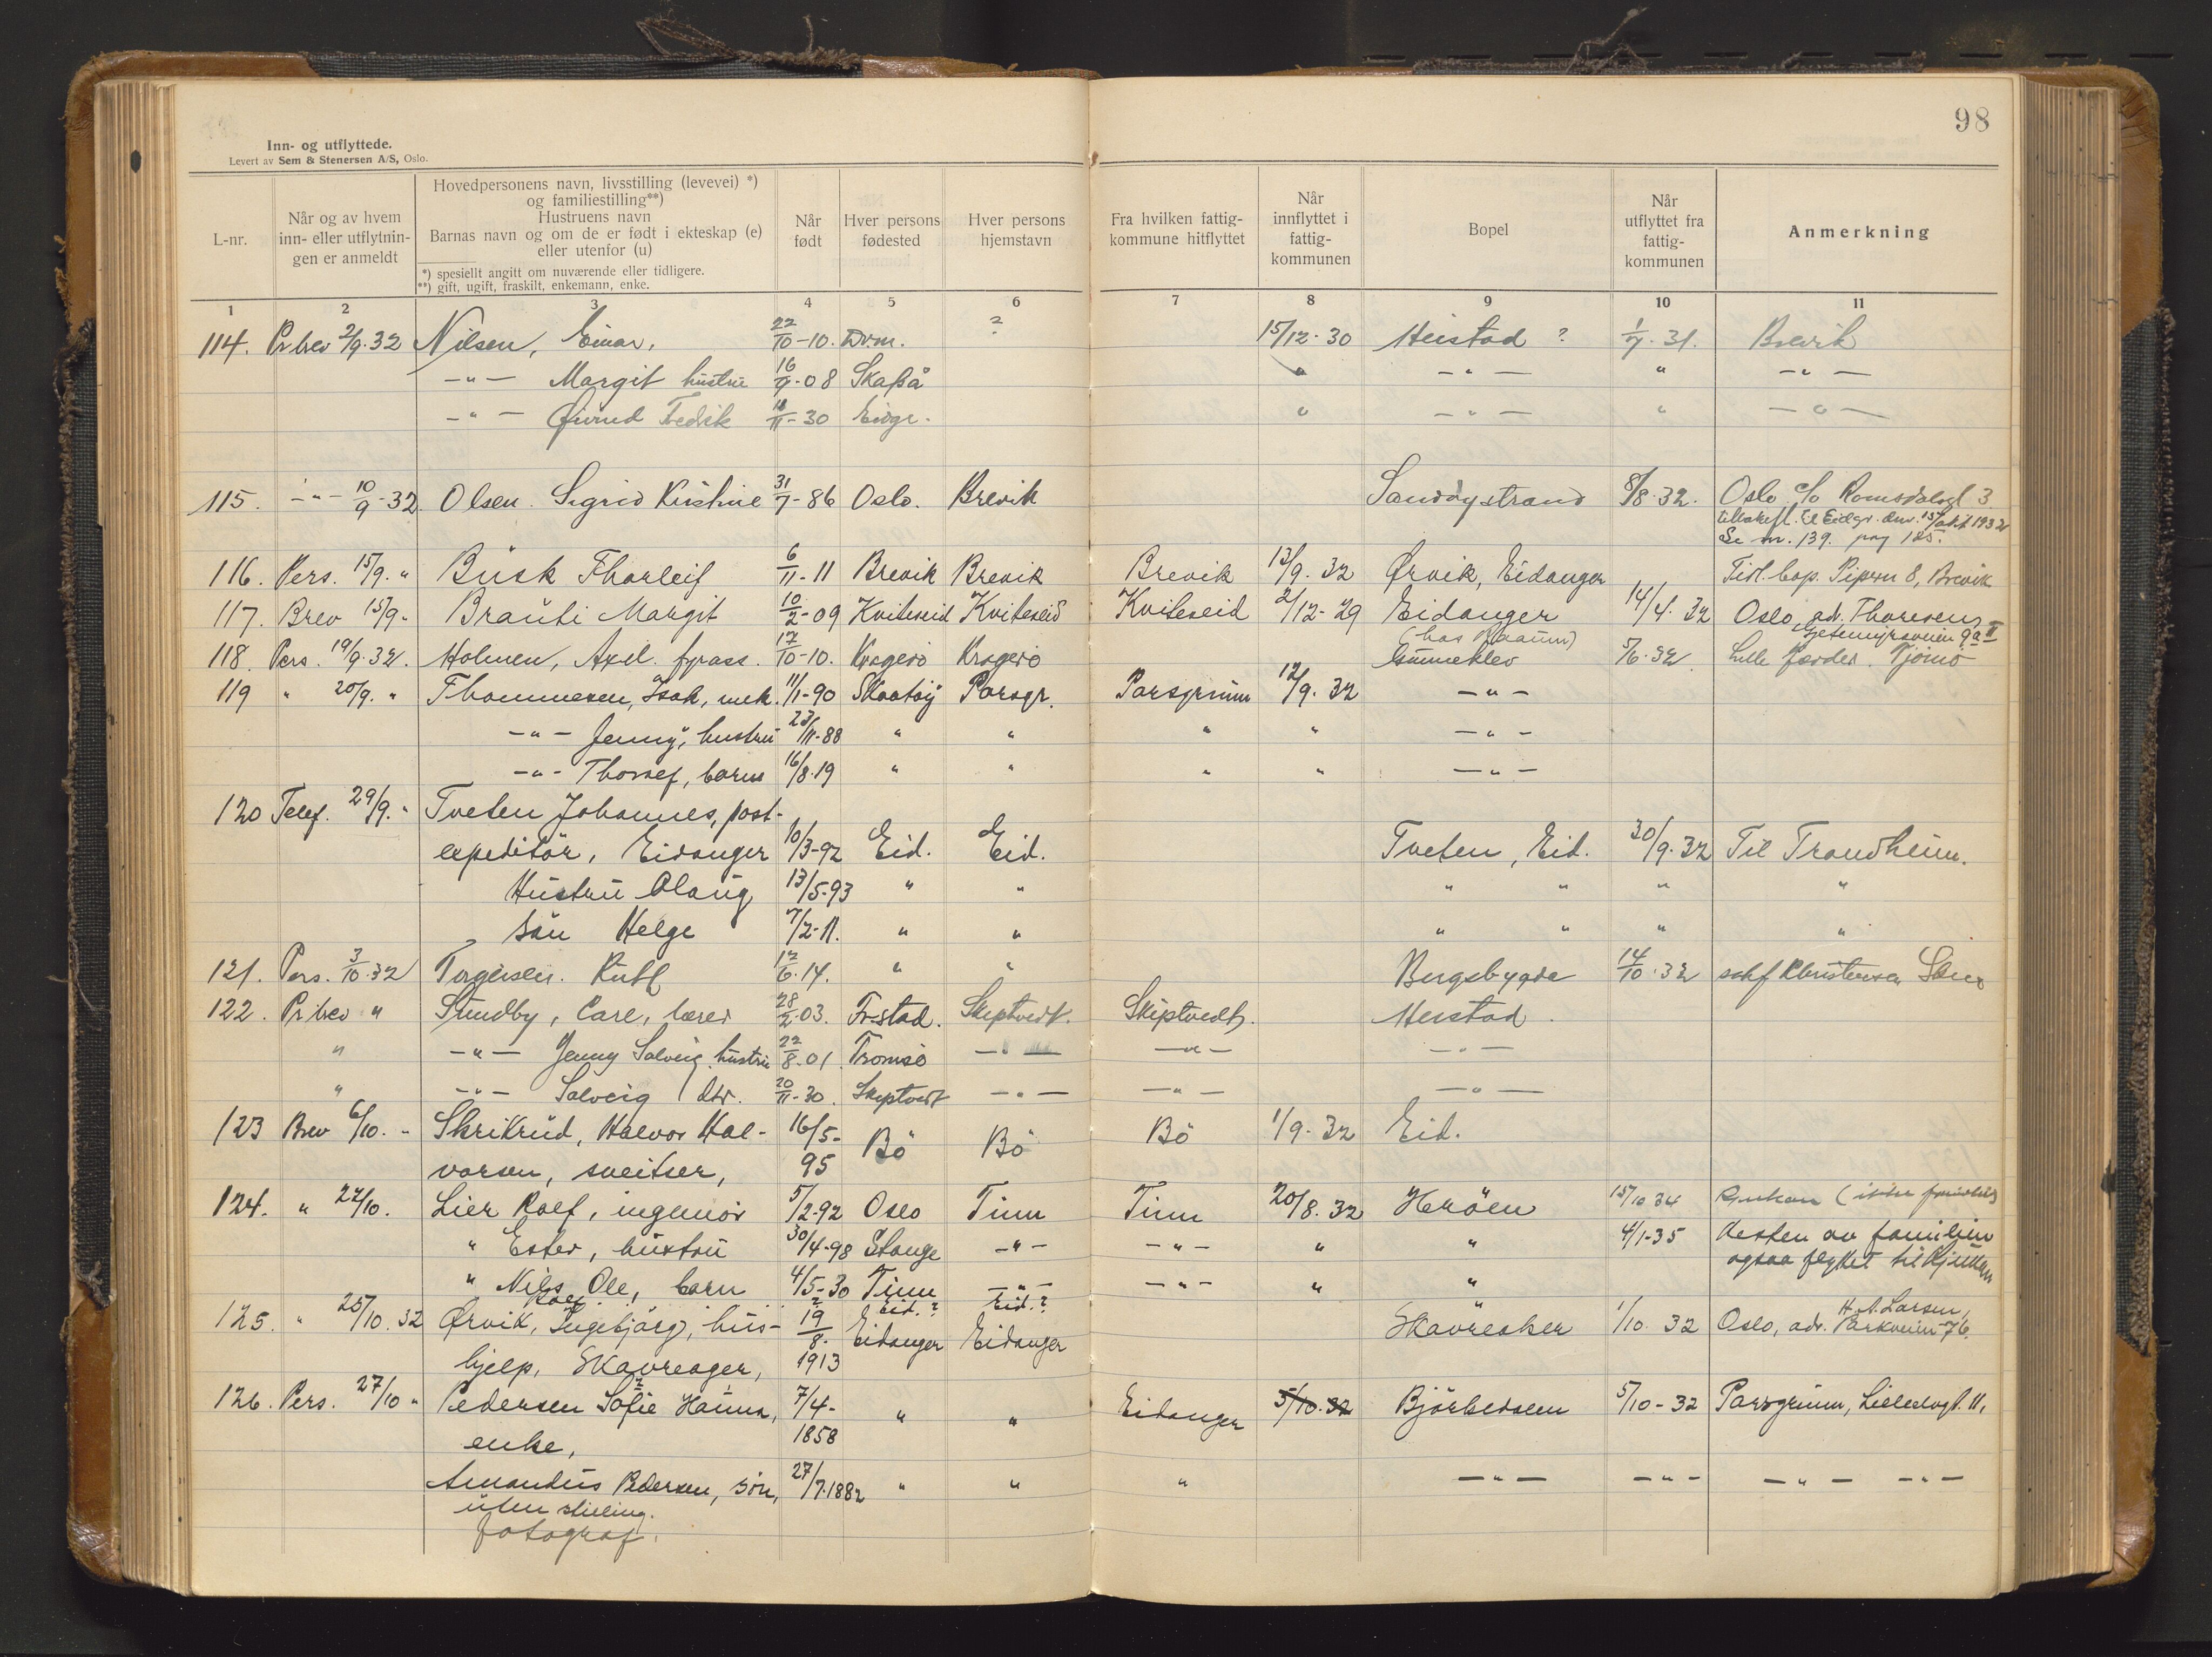 98
Inn- og utflyttede.
Levert av Sem & Stenersen A/S, Oslo.
L-nr.
Når og av hvem inn- eller utflytnin-gen er anmeldt
Hovedpersonens navn, livsstilling (levevei) *) og familiestilling**)
Hustruens navn
Barnas navn og om de er født i ekteskap (e) eller utenfor (u)
*) spesiellt angitt om nuværende eller tidligere.
**) gift, ugift, fraskilt, enkemann, enke.
Når født
Hver persons fødested
Hver persons hjemstavn
Fra hvilken fattig-kommune hitflyttet
Når innflyttet i fattig-kommunen
Bopel
Når utflyttet fra fattig-kommunen
Anmerkning
1 2 3 4 5 6 7 8 9 10 11
114. Pr brev 2/9.32 Nilsen, Einar, 22/10-10. ? 15/12-30 Heistad ? 1/7.31. Brevik
-"- Margit hustru 16/9-08 Skaftå " -"- " -"-
-"- Øivind Fredrik 11/11-30 Eidgr. " -"- " -"-
115. -"- 10/9-32. Olsen. Sigrid Kristine 31/7-86 Oslo. Brevik Sandøystrand 8/8.32. Oslo c/o Romsdalsgt 3
tilbakefl. til Eidgr. 15/okt 1932
Se nr. 139. pag 125.
116. Pers. 15/9. " Busk Thorleif 6/11-11 Brevik Brevik Brevik 13/9.32 Ørvik, Eidanger Tidl. bop. 8, Brevik
117. Brev 15/9 " Brauti Margit 10/2-09 Kviteseid Kviteseid Kviteseid 2/12-29 Eidanger 14/4.32 Oslo, ad. Thoresen,
(hos Raaum) Geitemyrsveien 9a II
118. Pers. 19/9.32. Holmen, Axel. fyrass. 17/10-10. Kragerö Kragerö Gunneklev 5/6.32. Lille Færder. Tjömö
119 " 20/9. " Thommesen, Isak, mek. 11/1-90 Skaatöy Porsgr. Porsgrunn 12/9.32 -"-
-"- Jenny, hustru 23/11-88 " " " " -"-
-"- Thorlef, barn 16/8.19 " " " " -"-
120 Telef. 29/9. " Tveten Johannes, post-
expeditör, Eidanger 10/3-92 Eid. Eid. Tveten, Eid. 30/9.32 Til Trondheim.
Hustru Olaug 13/5-93 " " " " " "
sön Helge 7/2-11. " " " " " "
121. Pers. 3/10.32 Torgersen. Ruth 17/6.14. " " Bergsbygda 14/10.32 Christensen Skien
122. Pr brev " Sundby, Carl, lærer 28/2-03. Fr.stad. Skiptvedt. Skiptvedt. Heistad.
" -"- Jenny Solveig hustru 22/8-01 Tromsö -"- -"- -"-
" -"- Solveig dtr. 20/11-30. Skiptvedt -"- -"- -"-
123 Brev 6/10. " Skrikrud, Halvor Hal- 16/5- Bö Bö Bö 1/9.32 Eid.
vorsen, sveitser, 95
124. " 27/10. Lier Rolf, ingeniör 5/2-92 Oslo Tinn Tinn 20/8.32 Heröen 15/10 34 Rjukan (ikke
" Ester, hustru 30/4-98 Stange -"- -"- " " 4/1-35 Resten av familien
ogsaa flyttet til Rjukan
" Nils Ole, barn 4/5-30 Tinn -"- -"- " "
Rolf ? Eid.? Eid.? "
125. " 25/10.32 Ørvik, Ingebjörg, hus- 19/8- Eidanger Eidanger Skavreaker 1/10.32 Oslo, adr. H.A. Larsen, Parkveien 76.
hjelp, Skavreager, 1913
126. Pers. 27/10 " Pedersen Sofie Hanna, 7/4- " " Eidanger 5/10.32 Björkedalen 5/10-32 Porsgrunn, Lilleelvgt. 11,
enke, 1858
Amandus Pedersen, sön, 27/7.1882 " " " -"- -"- -"- -"-
uten stilling.
fotograf.